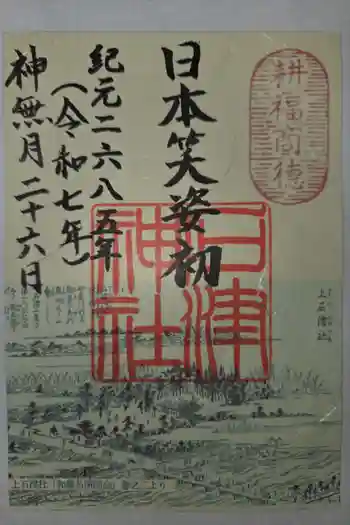 耕福聞徳
日本笑姿初
紀元二六八五年
（令和七年）
神無月二十六日
石津神社
上石津社